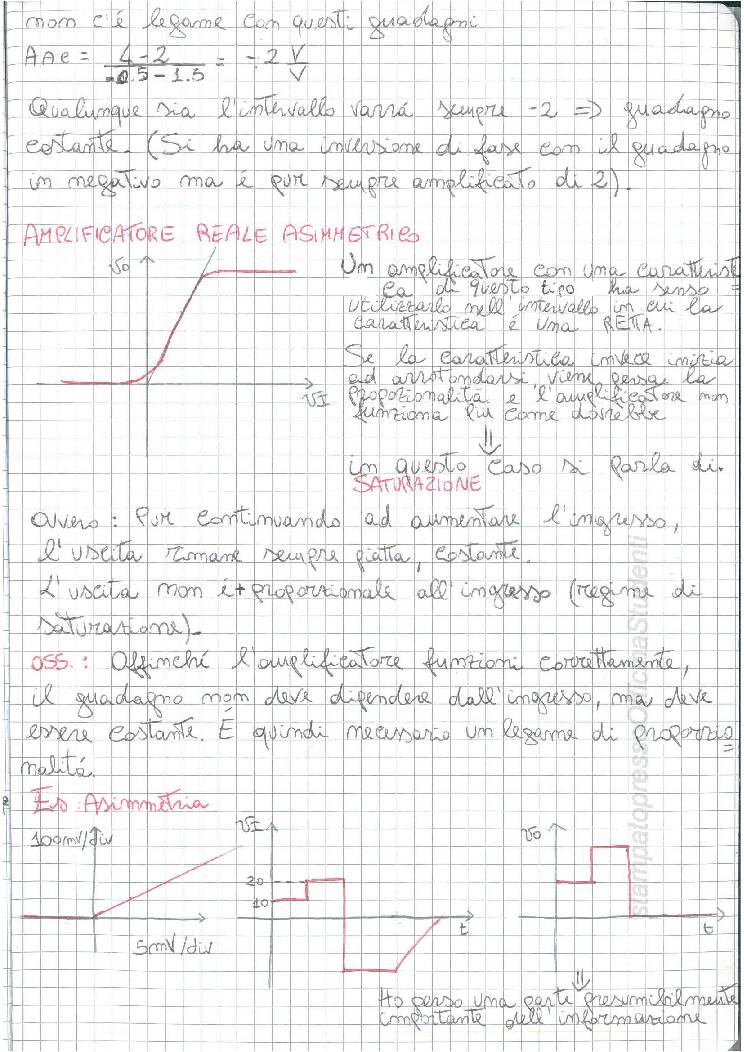 non c'é legame con questi guadagni
AAe = 4-2 / -0.5-1.5 = -2 V/V
Qualunque sia l'intervallo varrá sempre -2 => guadagno
costante. (Si ha una inversione di fase con il guadagno
in negativo ma é pur sempre amplificato di 2).
AMPLIFICATORE REALE ASIMMETRICO
vo
vI
Un amplificatore con una caratterist
ica di questo tipo ha senso
utilizzarlo nell'intervallo in cui la
caratteristica é una RETTA.
Se la caratteristica invece inizia
ad arrotondarsi viene persa la
proporzionalitá e l'amplificatore non
funziona piú come dovrebbe
⇓
in questo caso si parla di.
SATURAZIONE
Ovvero: Pur continuando ad aumentare l'ingresso,
l'uscita rimane sempre piatta, costante.
L'uscita non é + proporzionale all'ingresso (regime di
saturazione).
OSS.: Affinché l'amplificatore funzioni correttamente,
il guadagno non deve dipendere dall'ingresso, ma deve
essere costante. É quindi necessario un legame di proporzio=
nalitá.
Es Asimmetria
100mV/div
5mV/div
vI
20
10
t
vo
t
⇓
Ho perso una parte presumibilmente
importante dell'informazione
stampatopressoOfficinaStudenti